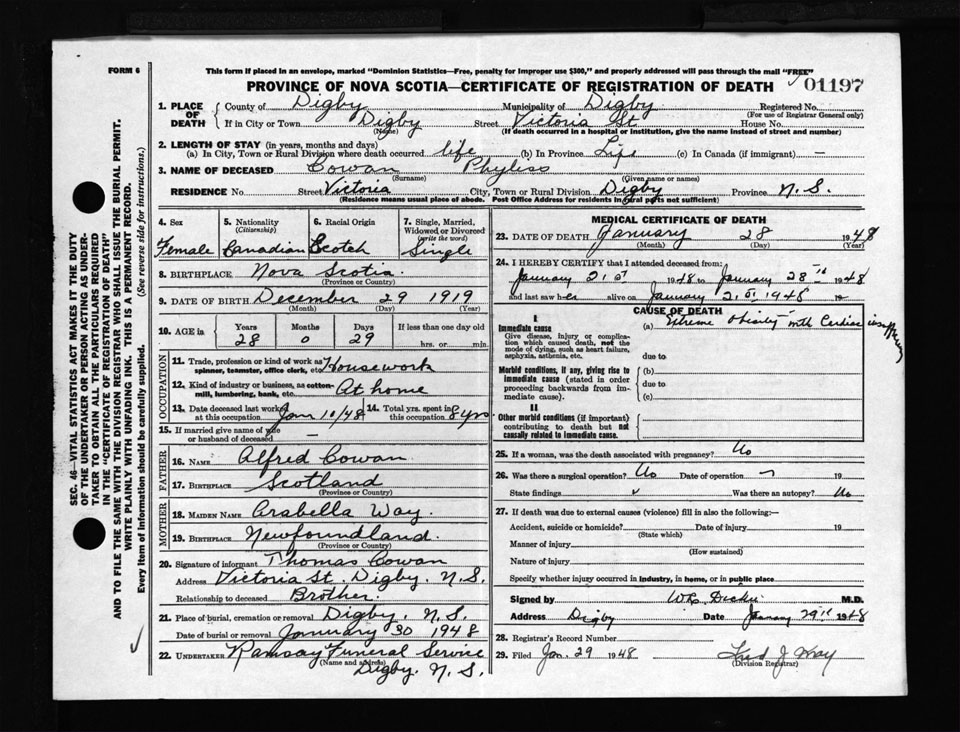 FORM 6
This form if placed in an envelope, marked "Dominion Statistics—Free, penalty for improper use $300," and properly addressed will pass through the mail "FREE"
PROVINCE OF NOVA SCOTIA—CERTIFICATE OF REGISTRATION OF DEATH
01197
1. PLACE OF DEATH
County of Digby Municipality of Digby Registered No.
(For use of Registrar General only)
If in City or Town Digby Street Victoria St House No.
(Name) (If death occurred in a hospital or institution, give the name instead of street and number)
2. LENGTH OF STAY (in years, months and days)
(a) In City, Town or Rural Division where death occurred life (b) In Province Life (c) In Canada (if immigrant) —
3. NAME OF DECEASED Cowan Phyliss
(Surname) (Given name or names)
RESIDENCE No. Street Victoria City, Town or Rural Division Digby Province N.S.
(Residence means usual place of abode. Post Office Address for residents in rural parts not sufficient)
4. Sex
Female
5. Nationality
(Citizenship)
Canadian
6. Racial Origin
Scotch
7. Single, Married, Widowed or Divorced
(write the word)
Single
8. BIRTHPLACE Nova Scotia
(Province or Country)
9. DATE OF BIRTH December 29 1919
(Month) (Day) (Year)
10. AGE in
Years Months Days If less than one day old
28 0 29 hrs. or min.
OCCUPATION
11. Trade, profession or kind of work as spinner, teamster, office clerk, etc. Housework
12. Kind of industry or business, as cotton-mill, lumbering, bank, etc. At home
13. Date deceased last worked at this occupation Jan 10/48 14. Total yrs. spent in this occupation 8 yrs
15. If married give name of wife or husband of deceased —
FATHER
16. NAME Alfred Cowan
17. BIRTHPLACE Scotland
(Province or Country)
MOTHER
18. MAIDEN NAME Arabella Way
19. BIRTHPLACE Newfoundland.
(Province or Country)
20. Signature of informant Thomas Cowan
Address Victoria St. Digby. N.S.
Relationship to deceased Brother.
21. Place of burial, cremation or removal Digby. N.S.
Date of burial or removal January 30 1948
22. UNDERTAKER Ramsay Funeral Service
(Name and address)
Digby. N.S.
MEDICAL CERTIFICATE OF DEATH
23. DATE OF DEATH January 28 1948
(Month) (Day) (Year)
24. I HEREBY CERTIFY that I attended deceased from:
January 21st 1948 to January 28th 1948
and last saw her alive on January 21st 1948 19
CAUSE OF DEATH
I
Immediate cause
Give disease, injury or complication which caused death, not the mode of dying, such as heart failure, asphyxia, asthenia, etc.
(a) Extreme Obesity with Cardiac
due to
Morbid conditions, if any, giving rise to immediate cause (stated in order proceeding backwards from immediate cause).
(b)
due to
(c)
II
Other morbid conditions (if important) contributing to death but not causally related to immediate cause.
25. If a woman, was the death associated with pregnancy? No
26. Was there a surgical operation? No Date of operation 19
State findings Was there an autopsy? No
27. If death was due to external causes (violence) fill in also the following:—
Accident, suicide or homicide? Date of injury 19
(State which)
Manner of injury
(How sustained)
Nature of injury
Specify whether injury occurred in industry, in home, or in public place
Signed by M.D.
Address Digby Date January 29th 1948
28. Registrar's Record Number
29. Filed Jan. 29 1948 Fred J.
(Division Registrar)
SEC. 46—VITAL STATISTICS ACT MAKES IT THE DUTY
OF THE UNDERTAKER OR PERSON ACTING AS UNDER-
TAKER TO OBTAIN ALL THE PARTICULARS REQUIRED
IN THE "CERTIFICATE OF REGISTRATION OF DEATH"
AND TO FILE THE SAME WITH THE DIVISION REGISTRAR WHO SHALL ISSUE THE BURIAL PERMIT.
WRITE PLAINLY WITH UNFADING INK. THIS IS A PERMANENT RECORD.
Every item of information should be carefully supplied. (See reverse side for instructions.)